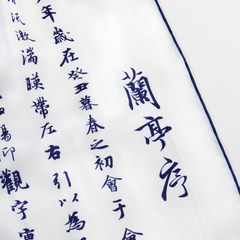 蘭亭序
年歲在癸丑暮春之初會于會
流激湍暎帶左右引以為
暢仰觀宇宙